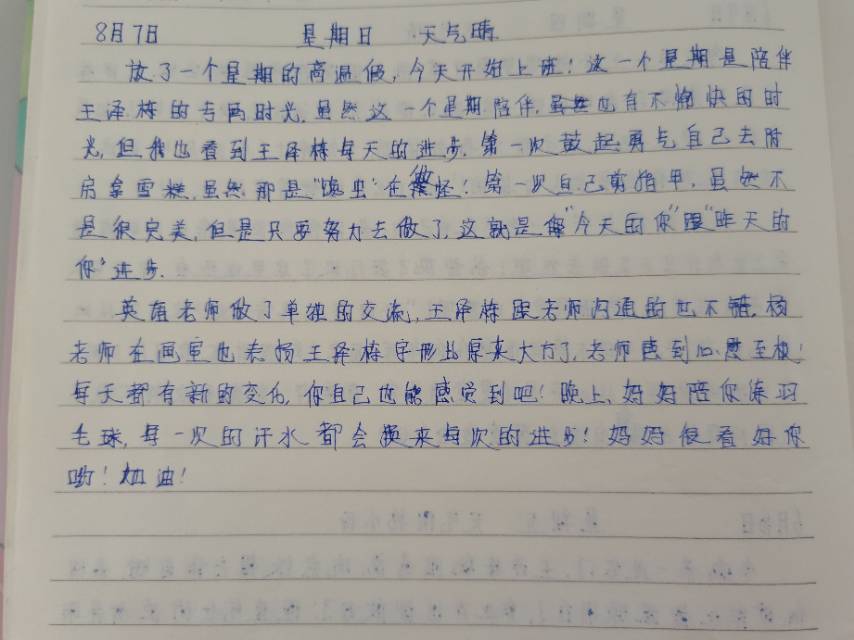 8月7日 星期日 天气晴
放了一个星期的高温假,今天开始上班!这一个星期是陪伴
王泽栋的专属时光,虽然这一个星期陪伴,虽然也有不愉快的时
光,但我也看到王泽栋每天的进步.第一次鼓起勇气自己去附
房拿雪糕,虽然那是"馋虫"在做怪!第一次自己剪指甲,虽然不
是很完美,但是只要努力去做了,这就是"今天的你"跟"昨天的
你"进步.
英语老师做了单独的交流,王泽栋跟老师沟通的也不错,杨
老师在画室也表扬王泽栋字形比原来大方了,老师感到心意至极!
每天都有新的变化,你自己也能感觉到吧!晚上,妈妈陪你练羽
毛球,每一次的汗水都会换来每次的进步!妈妈很看好你
哟!加油!